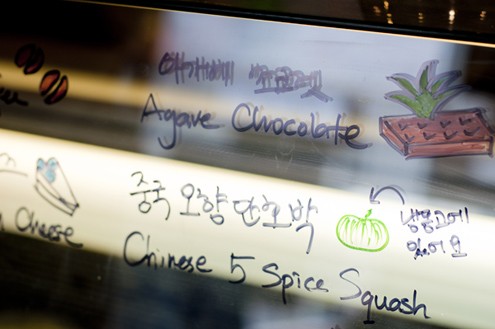 아가베 초콜렛
Agave Chocolate
Cheese
중국 오향 단호박
냉장고에
있어요
Chinese 5 Spice Squash